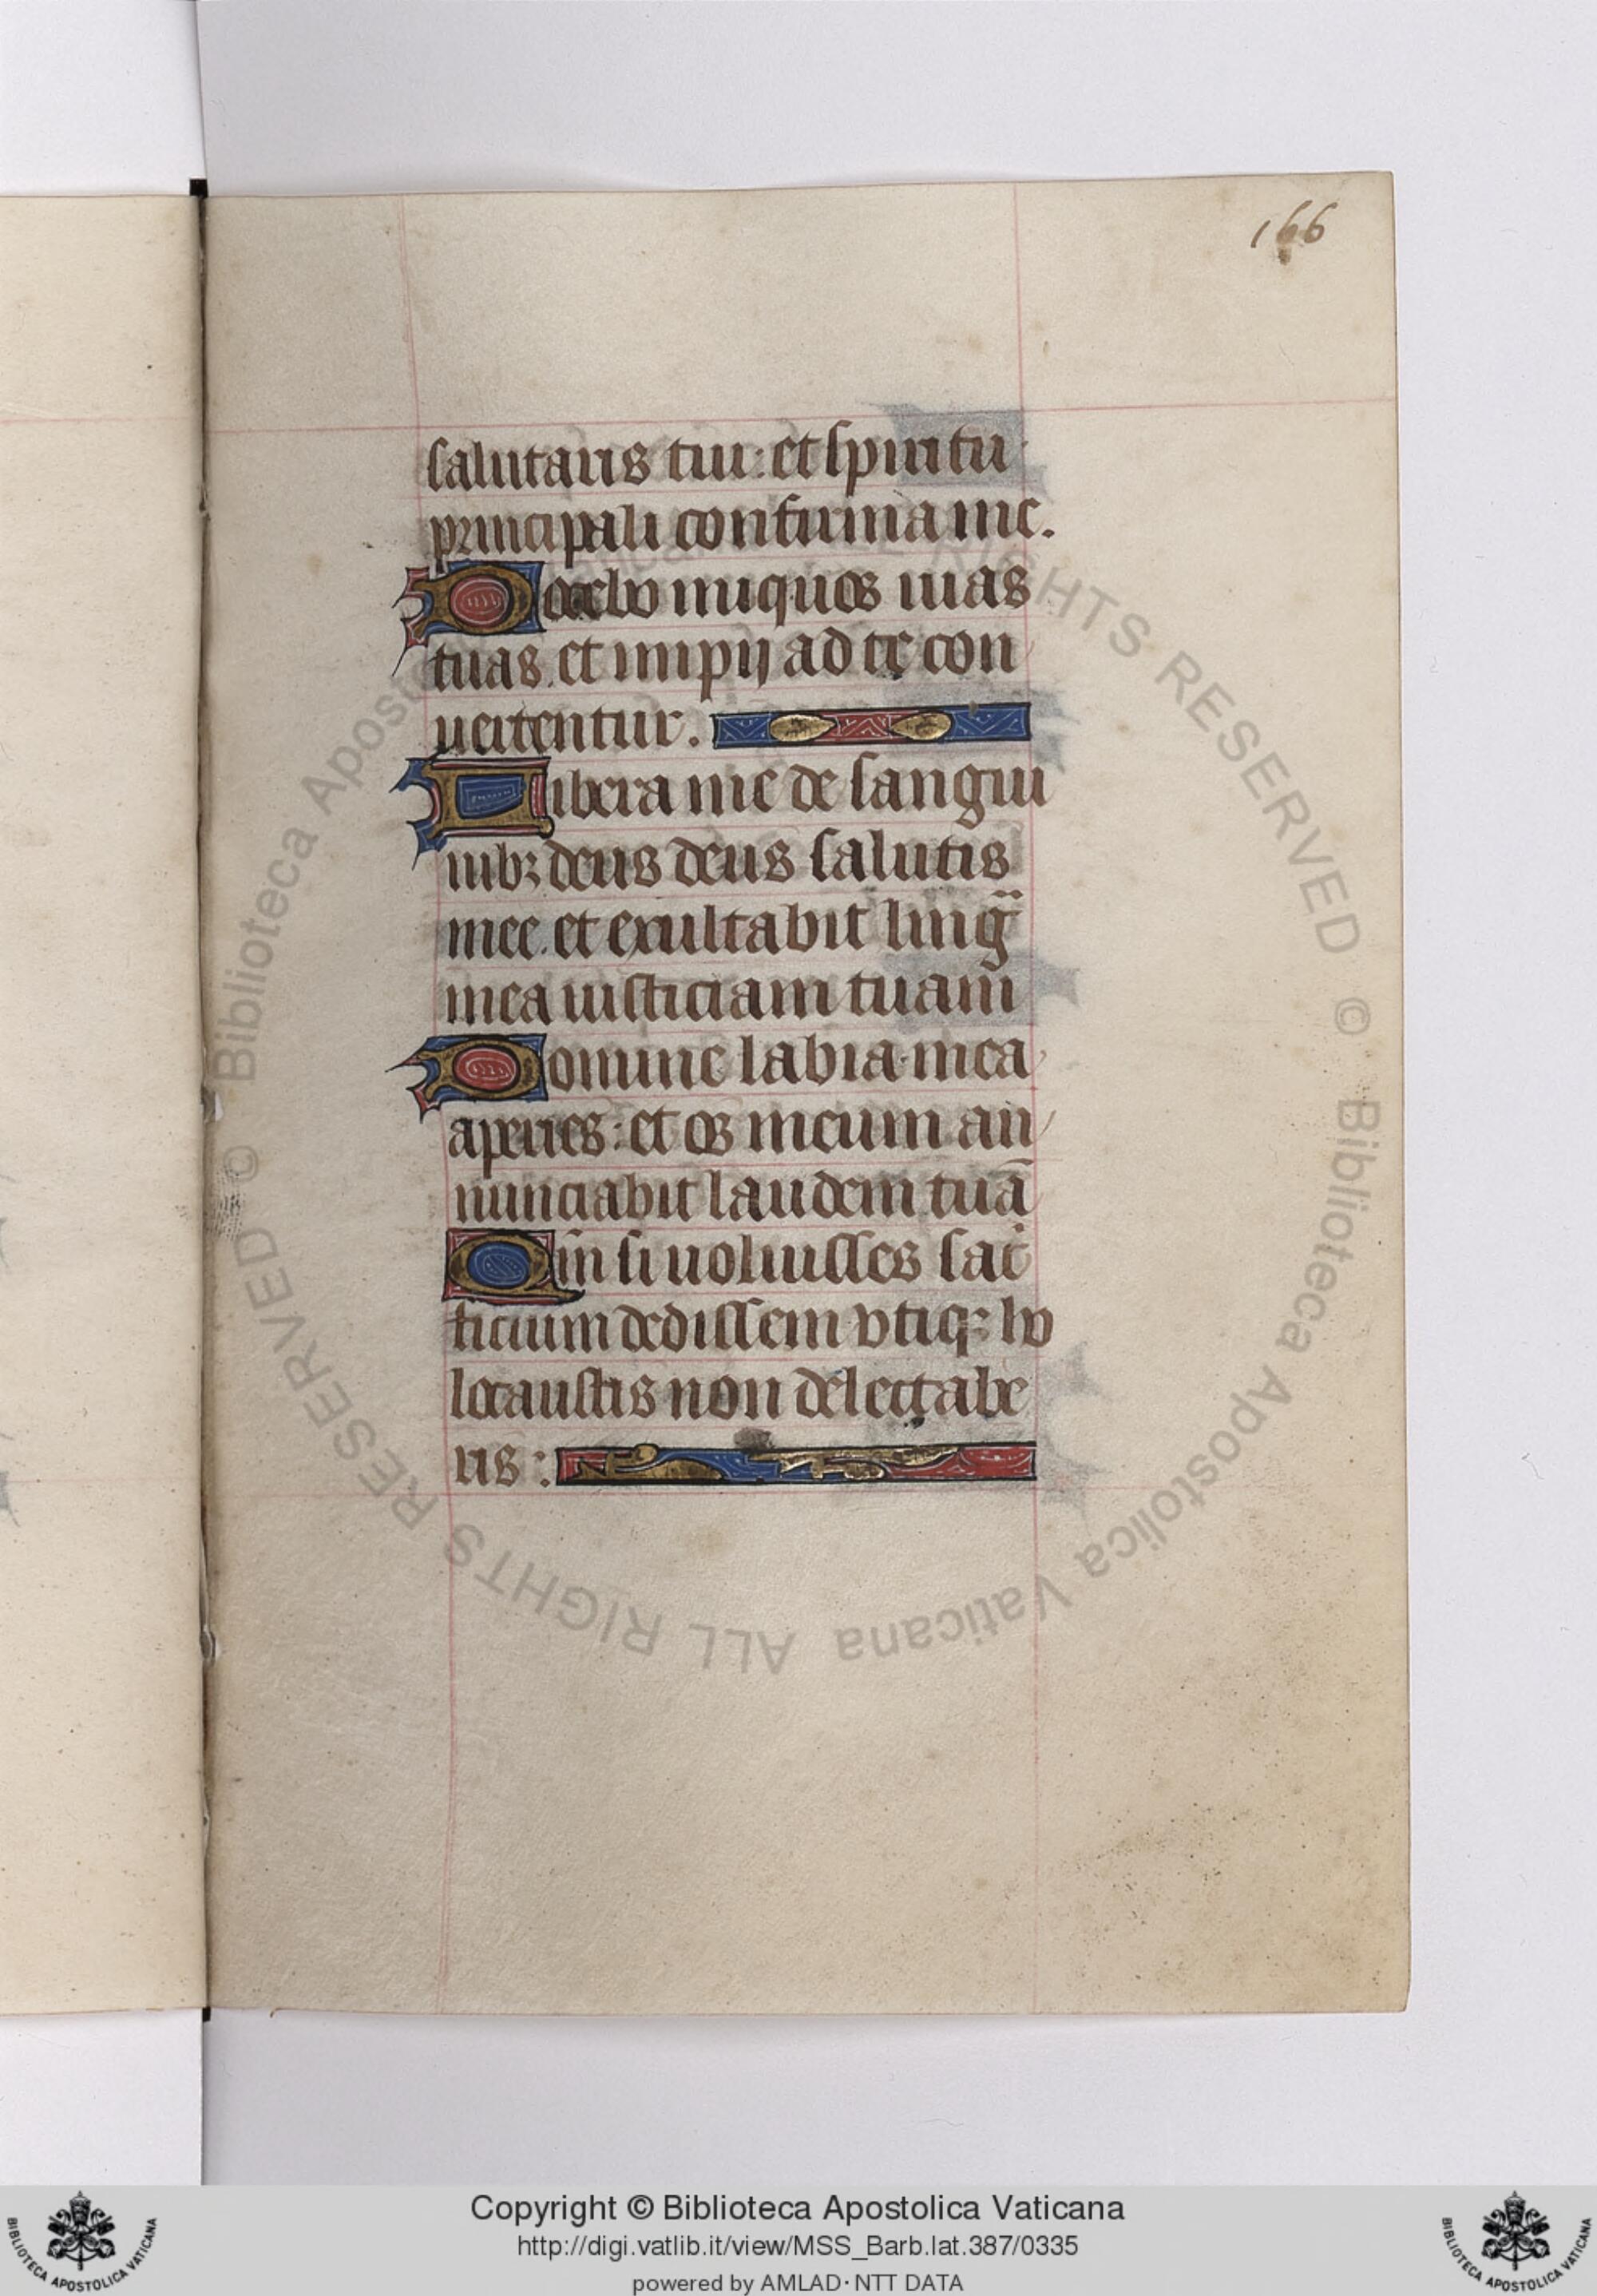 166
salutaris tui: et spiritu
principali confirma me.
Docebo iniquos uias
tuas. et impij ad te con
uertentur.
Libera me de sangui
nibꝫ deus deus salutis
mee. et exultabit linḡ
mea iusticiam tuam
Domine labia mea
aperies: et os meum an
nunciabit laudem tuā
Qm̄ si uoluisses sac̍
ficium dedissem vtiqꝫ ho
locaustis non delectabe
ris:
© Biblioteca Apostolica Vaticana ALL RIGHTS RESERVED © Biblioteca Apostolica Vaticana ALL RIGHTS RESERVED
Copyright © Biblioteca Apostolica Vaticana
http://digi.vatlib.it/view/MSS_Barb.lat.387/0335
powered by AMLAD·NTT DATA
BIBLIOTECA APOSTOLICA VATICANA
BIBLIOTECA APOSTOLICA VATICANA